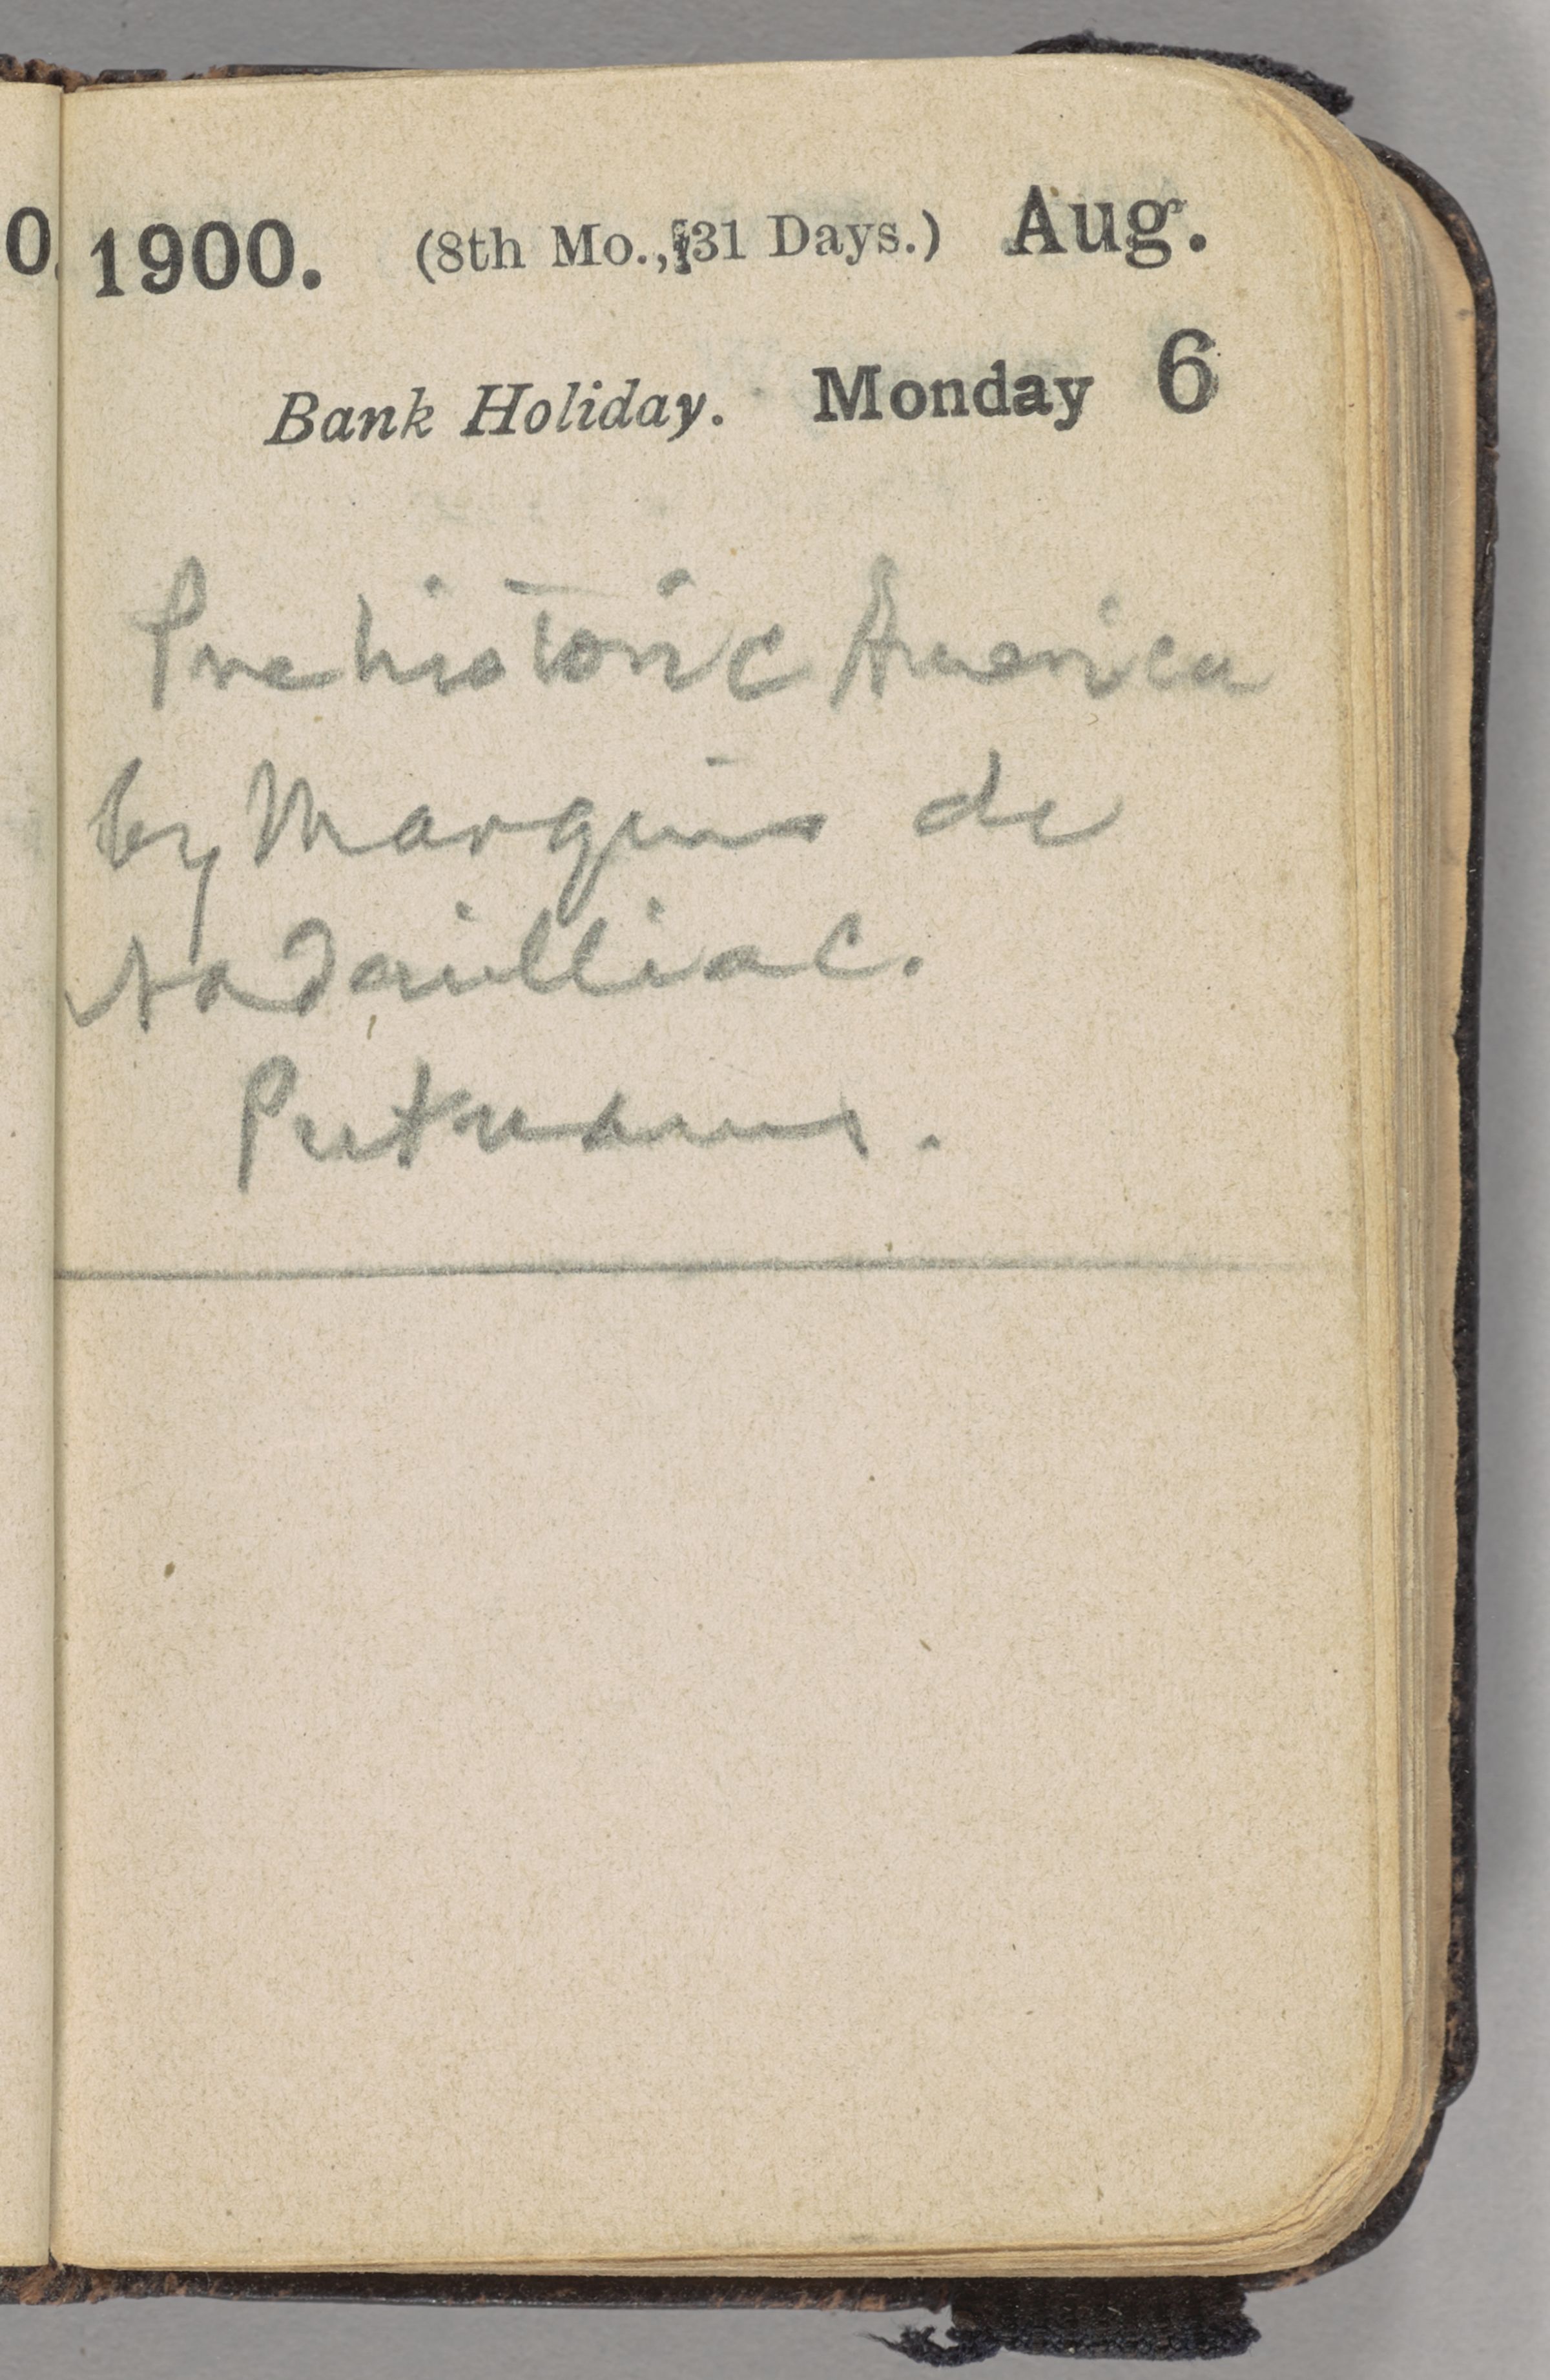 0.
1900. (8th Mo., 31 Days.) Aug.
Bank Holiday. Monday 6
Prehistoric America
by Marquis de
Nadailliac.
Putnams.